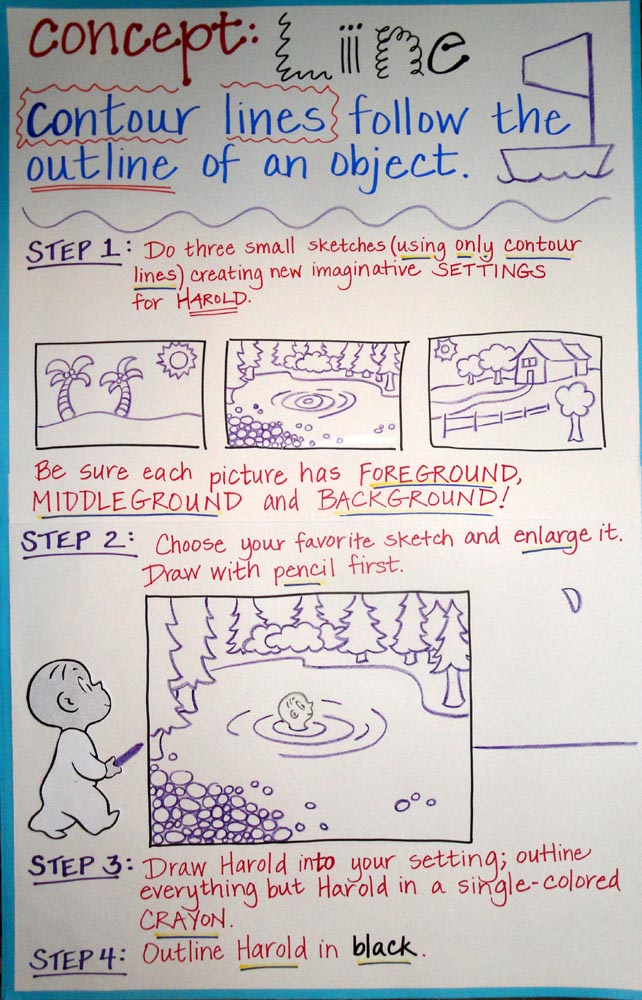 concept: Line
Contour lines follow the
outline of an object.
STEP 1: Do three small sketches (using only contour
lines) creating new imaginative SETTINGS
for HAROLD.
Be sure each picture has FOREGROUND,
MIDDLEGROUND and BACKGROUND!
STEP 2: Choose your favorite sketch and enlarge it.
Draw with pencil first.
STEP 3: Draw Harold into your setting; outline
everything but Harold in a single-colored
CRAYON.
STEP 4: Outline Harold in black.